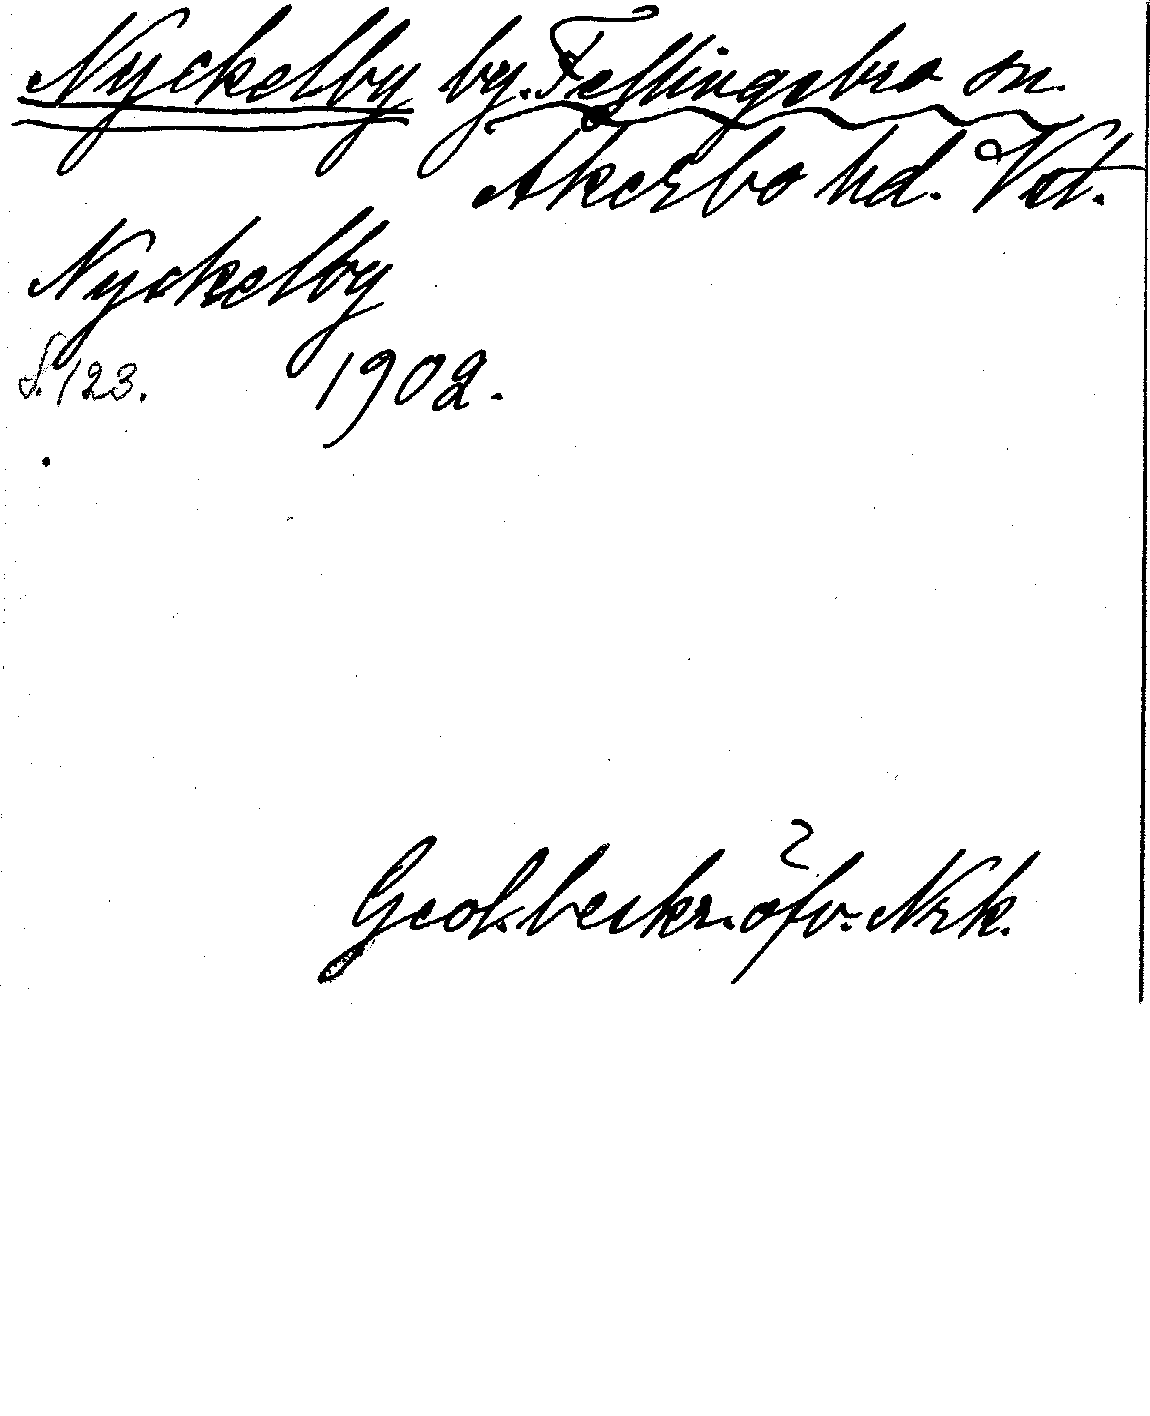 Nyckelby by. Fellingsbro sn.
Åkerbo hd. Vstm.
Nyckelby
S. 123. 1902.
Geol. beskr. öfv. Nrk.